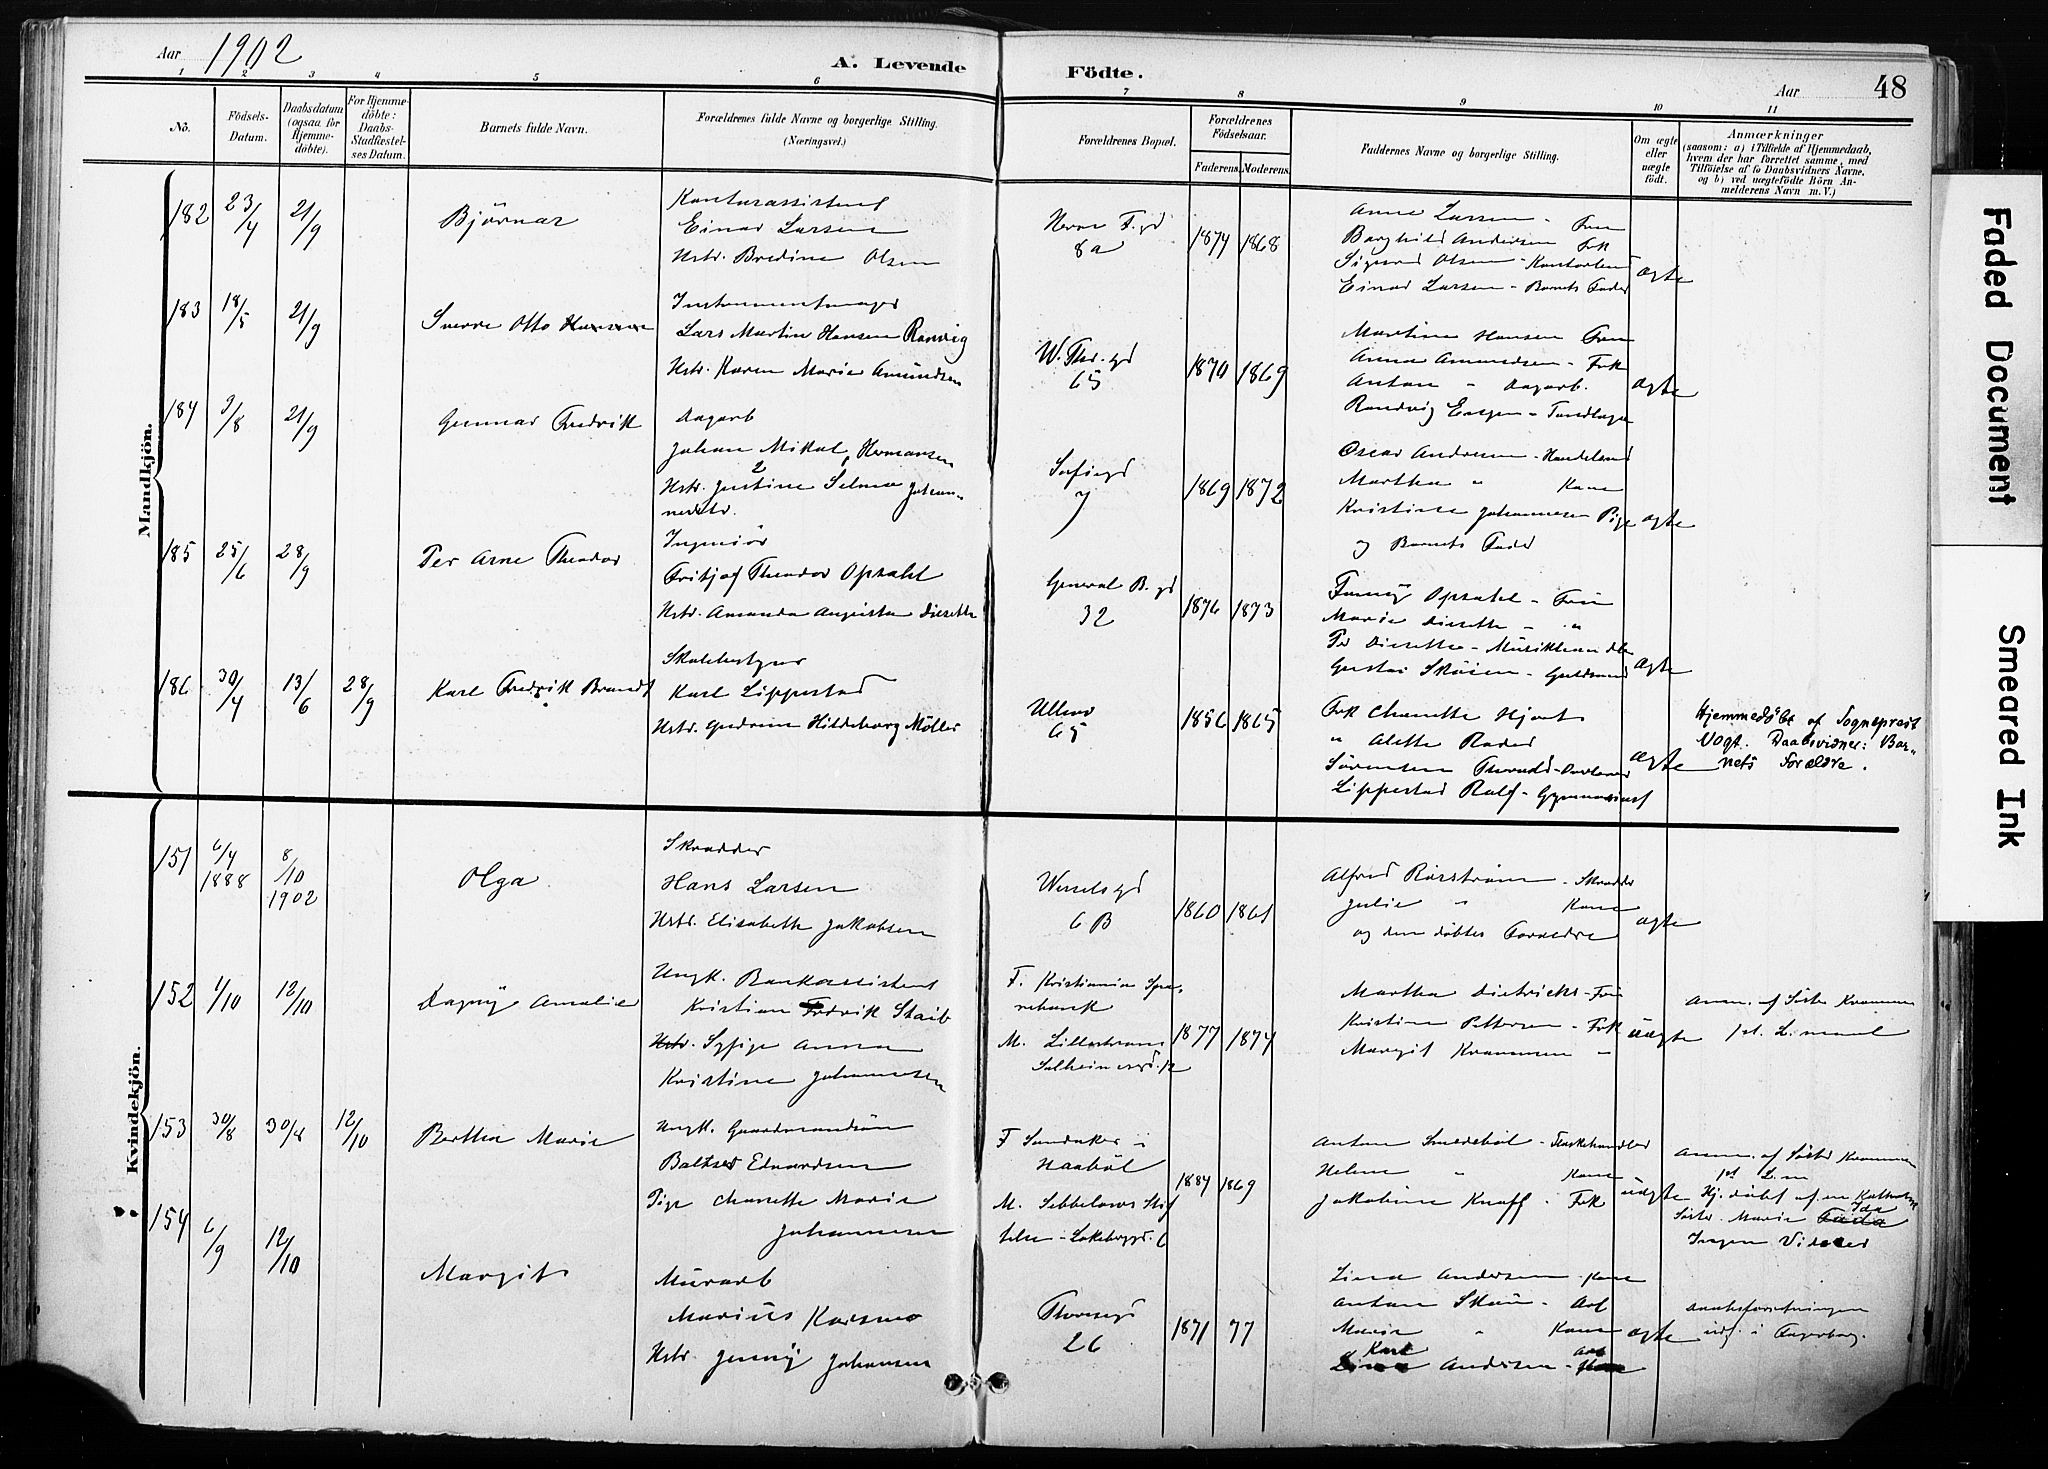 Aar 1902
A. Levende Födte.
Aar
48
1 2 3 4 5 6 7 8 9 10 11
No.
Födsels-Datum.
Daabsdatum (ogsaa for Hjemmedöbte).
For Hjemmedöbte: Daabs-Stadfæstelses Datum.
Barnets fulde Navn.
Forældrenes fulde Navne og borgerlige Stilling. (Næringsvei.)
Forældrenes Bopæl.
Forældrenes Födselsaar.
Faderens. Moderens.
Faddernes Navne og borgerlige Stilling.
Om ægte eller uægte födt.
Anmærkninger
(saasom: a) i Tilfælde af Hjemmedaab,
hvem der har forrettet samme, med
Tilföielse af to Daabsvidners Navne,
og b) ved uægtefödte Börn Anmelderens Navn m. V.)
Mandkjön.
182 23/4 21/9 Björnar
Kontorassistent
Einar Larsen
Hstr. Bredine Olsen
8a
1874 1868
Anna Larsen - Frue
Borghild Andersen Frk
Sigurd Olsen - Kontorbud
Einar Larsen - Barnets Fader
ægte
183 18/5 21/9 Sverre Otto
Instrumentmager
Lars Martin Hansen Ranvig
Hstr. Karen Marie Amundsen
W. Thr. gd
65
1870 1869
Martine Hansen Frue
Anna Amundsen - Frk
Anton " Dagarb.
ægte
184 9/8 21/9 Gunnar Fredrik
Dagarb
Johan Mikal Hermansen
Hstr. Justine Selma Johannesdtr.
Sofiegd
7
1869 1872
Oscar Andersen - Handelsmd
Martha " Kone
Kristine Johannesen Pige
og Barnets Fader
ægte
185 25/6 28/9 Per Arne Theodor
Ingeniör
Fritjof Theodor Opsahl
Hstr. Amanda Augusta Diesette
General B. gd
32
1876 1873
Fanny Opsahl - Frue
Marie Diesette - "
Per Diesette - Musikhandler
Gustav Sköien - Guldsmed
ægte
186 30/4 13/6 28/9 Karl Fredrik Brandt
Skolebestyrer
Karl Lippestad
Hstr. Gudrun Hildeborg Möller
Ullevv
65
1856 1865
Frk Chanette Hjort
" Alette Roder
Lippestad Ralf - Gymnasiast
ægte
Hjemmedöbt af Sognepræst
Vogt. Daabsvidner: Bar-
nets Forældre.
Kvindekjön.
151 6/4 1888 8/10 1902 Olga
Skrædder
Hans Larsen
Hstr. Elisabeth Jakobsen
Wesselsgd
6 B
1860 1861
Alfred Rörström - Skrædder
Julie " Kone
og den döbtes Forældre
ægte
152 1/10 12/10 Dagny Amalie
Ungk. Bankassistent
Kristian Fredrik Staib
Sypige Anna
Kristine Johannesen
F. Kristiania Spa-
rebank
M. Lilleströms
1877 1874
Martha Dietrichs - Frue
Kristine Pettersen - Frk
Margit Krammen "
uægte
Anm. af Söster Krammen
153 30/8 30/8 12/10 Bertha Marie
Ungk. Gaardmandsön
Baltser Edvardsen
Pige Chanette Marie
Johannesen
F Sandaker i
Haaböl
M. Sebbelows Stif
telse - Lakkeggd. 6
1884 1869
Anton Smedeböl - Fiskehandler
Helene " Kone
Jakobine Knoff - Frk
uægte
Anm. af Söster Krammen
Hj.döbt af en Katholsk
Söster Marie Ida
Ingen Vidner
154 6/9 12/10 Margit
Murarb
Marius Karsmo
Hstr. Jenny Johansen
Thoresgd
26
1871 77
Lina Andersen - Kone
Anton Skau - Arb
Marie " Kone
Karl Andersen - Arb
ægte
Daabsforretningen
udf. i Fagerborg.
Faded Document
Smeared Ink